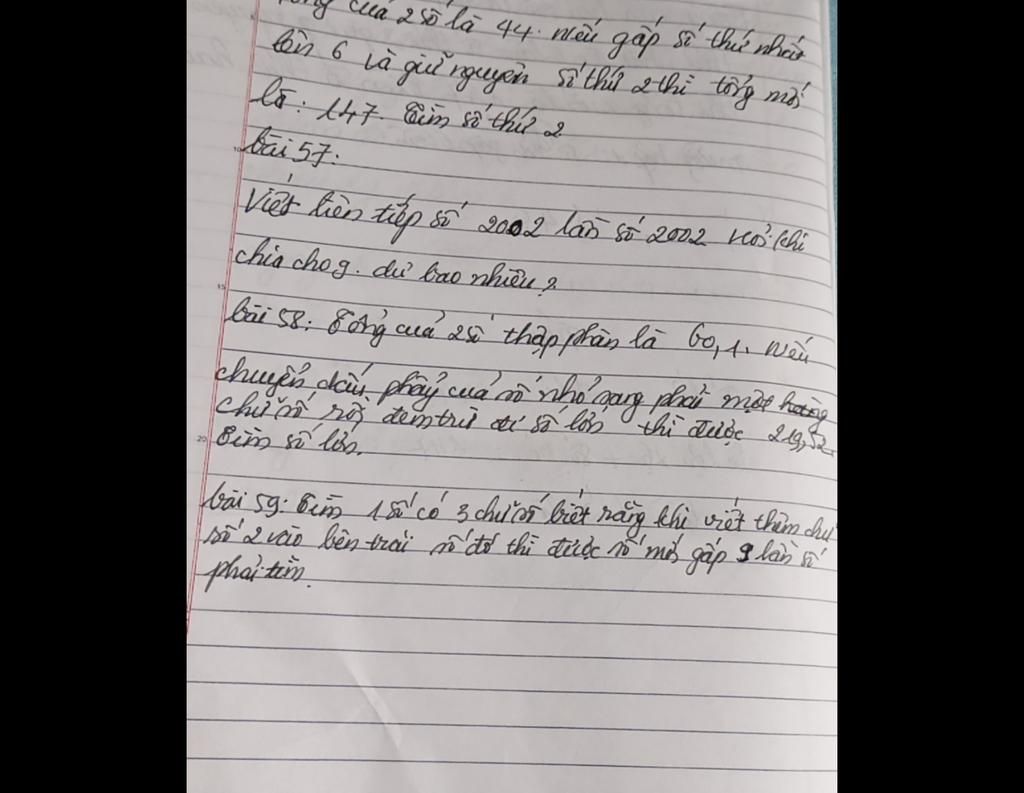 của 2 số là 44. nếu gấp số thứ nhất
lên 6 và giữ nguyên số thứ 2 thì tổng mới
là: 147. Tìm số thứ 2
10
bài 57:
Viết liên tiếp số 2002 lần số 2002 khi
chia cho 9. dư bao nhiêu?
15
bài 58: Tổng của 2 số thập phân là 60,1. nếu
chuyển dấu phẩy của số nhỏ sang phải một hàng
chữ số rồi đem trừ đi số lớn thì được 219,52.
20
Tìm số lớn.
bài 59: Tìm 1 số có 3 chữ số biết rằng khi viết thêm chữ
số 2 vào bên trái số đó thì được số mới gấp 9 lần số
phải tìm.